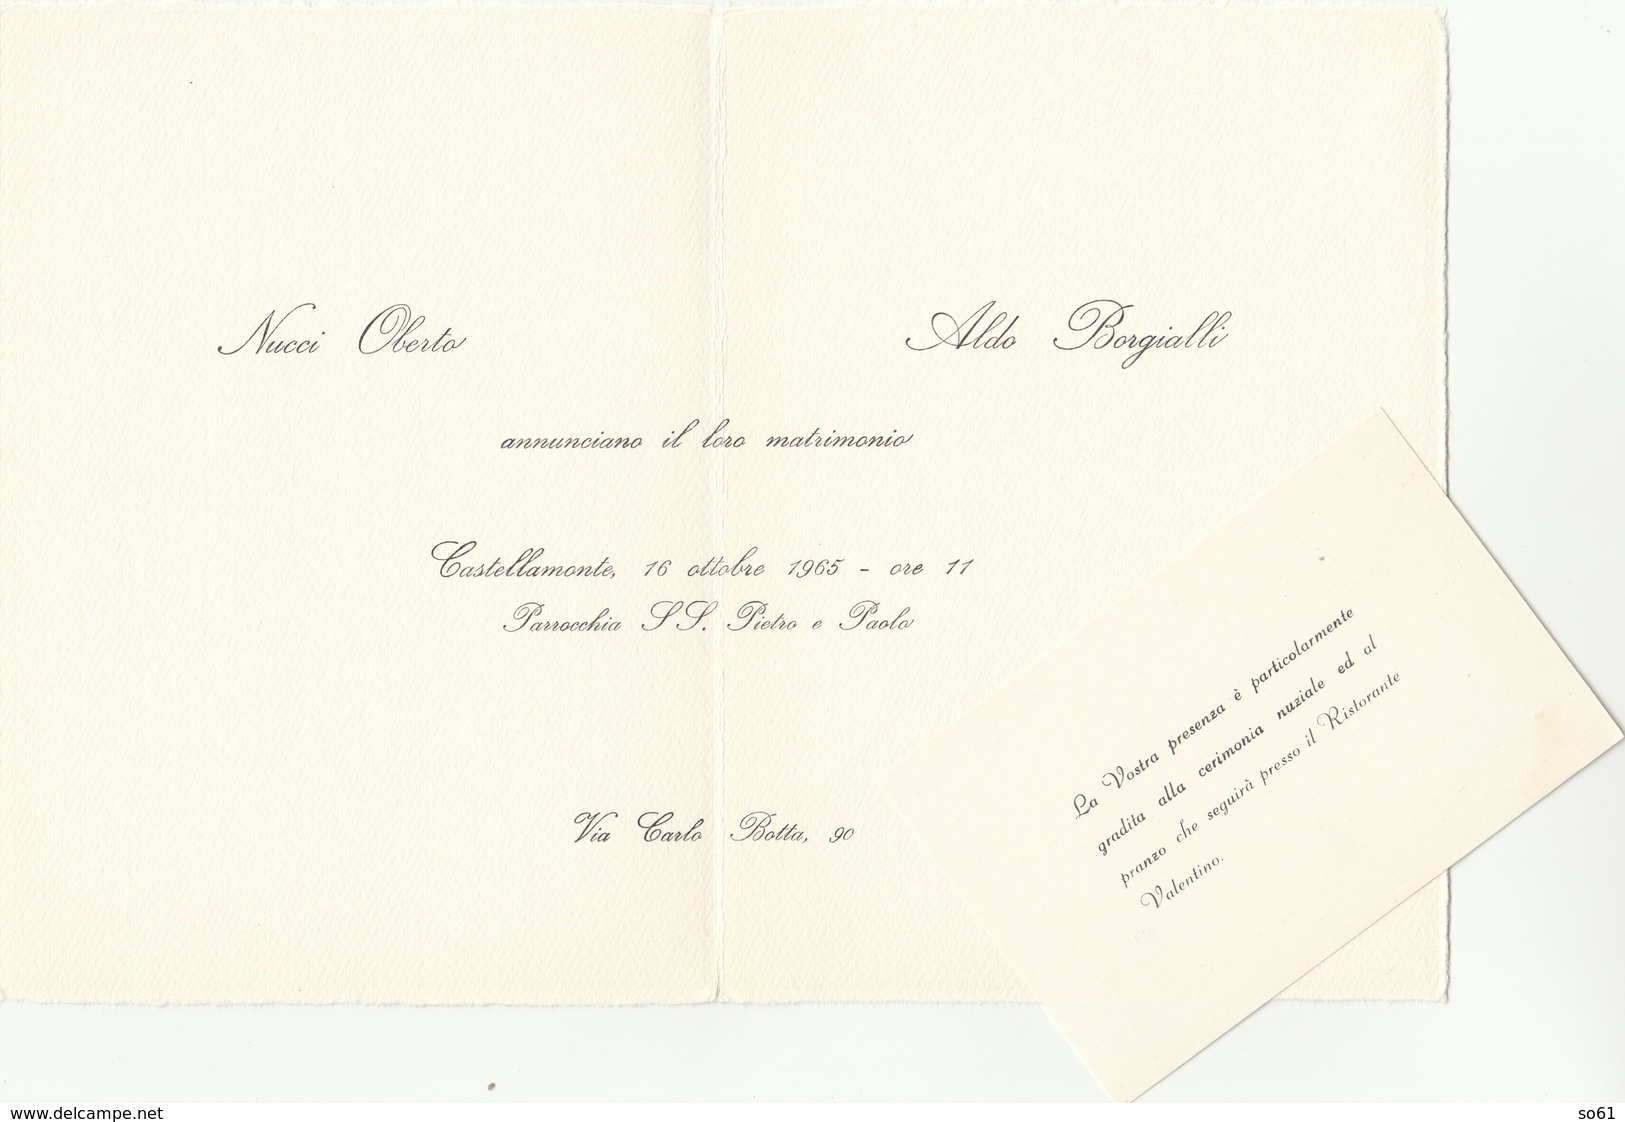 Nucci Oberto
Aldo Borgialli
annunciano il loro matrimonio
Castellamonte, 16 ottobre 1965 - ore 11
Parrocchia SS. Pietro e Paolo
Via Carlo Botta, 90
La Vostra presenza è particolarmente
gradita alla cerimonia nuziale ed al
pranzo che seguirà presso il Ristorante
Valentino.
www.delcampe.net
so61